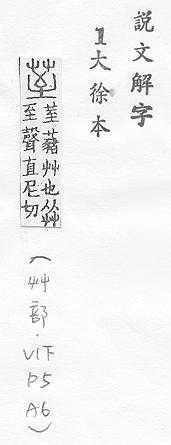 説文解字
1大徐本
荎
荎藸艸也从艸
至聲直尼切
(艸部.V1下
P5
A6)